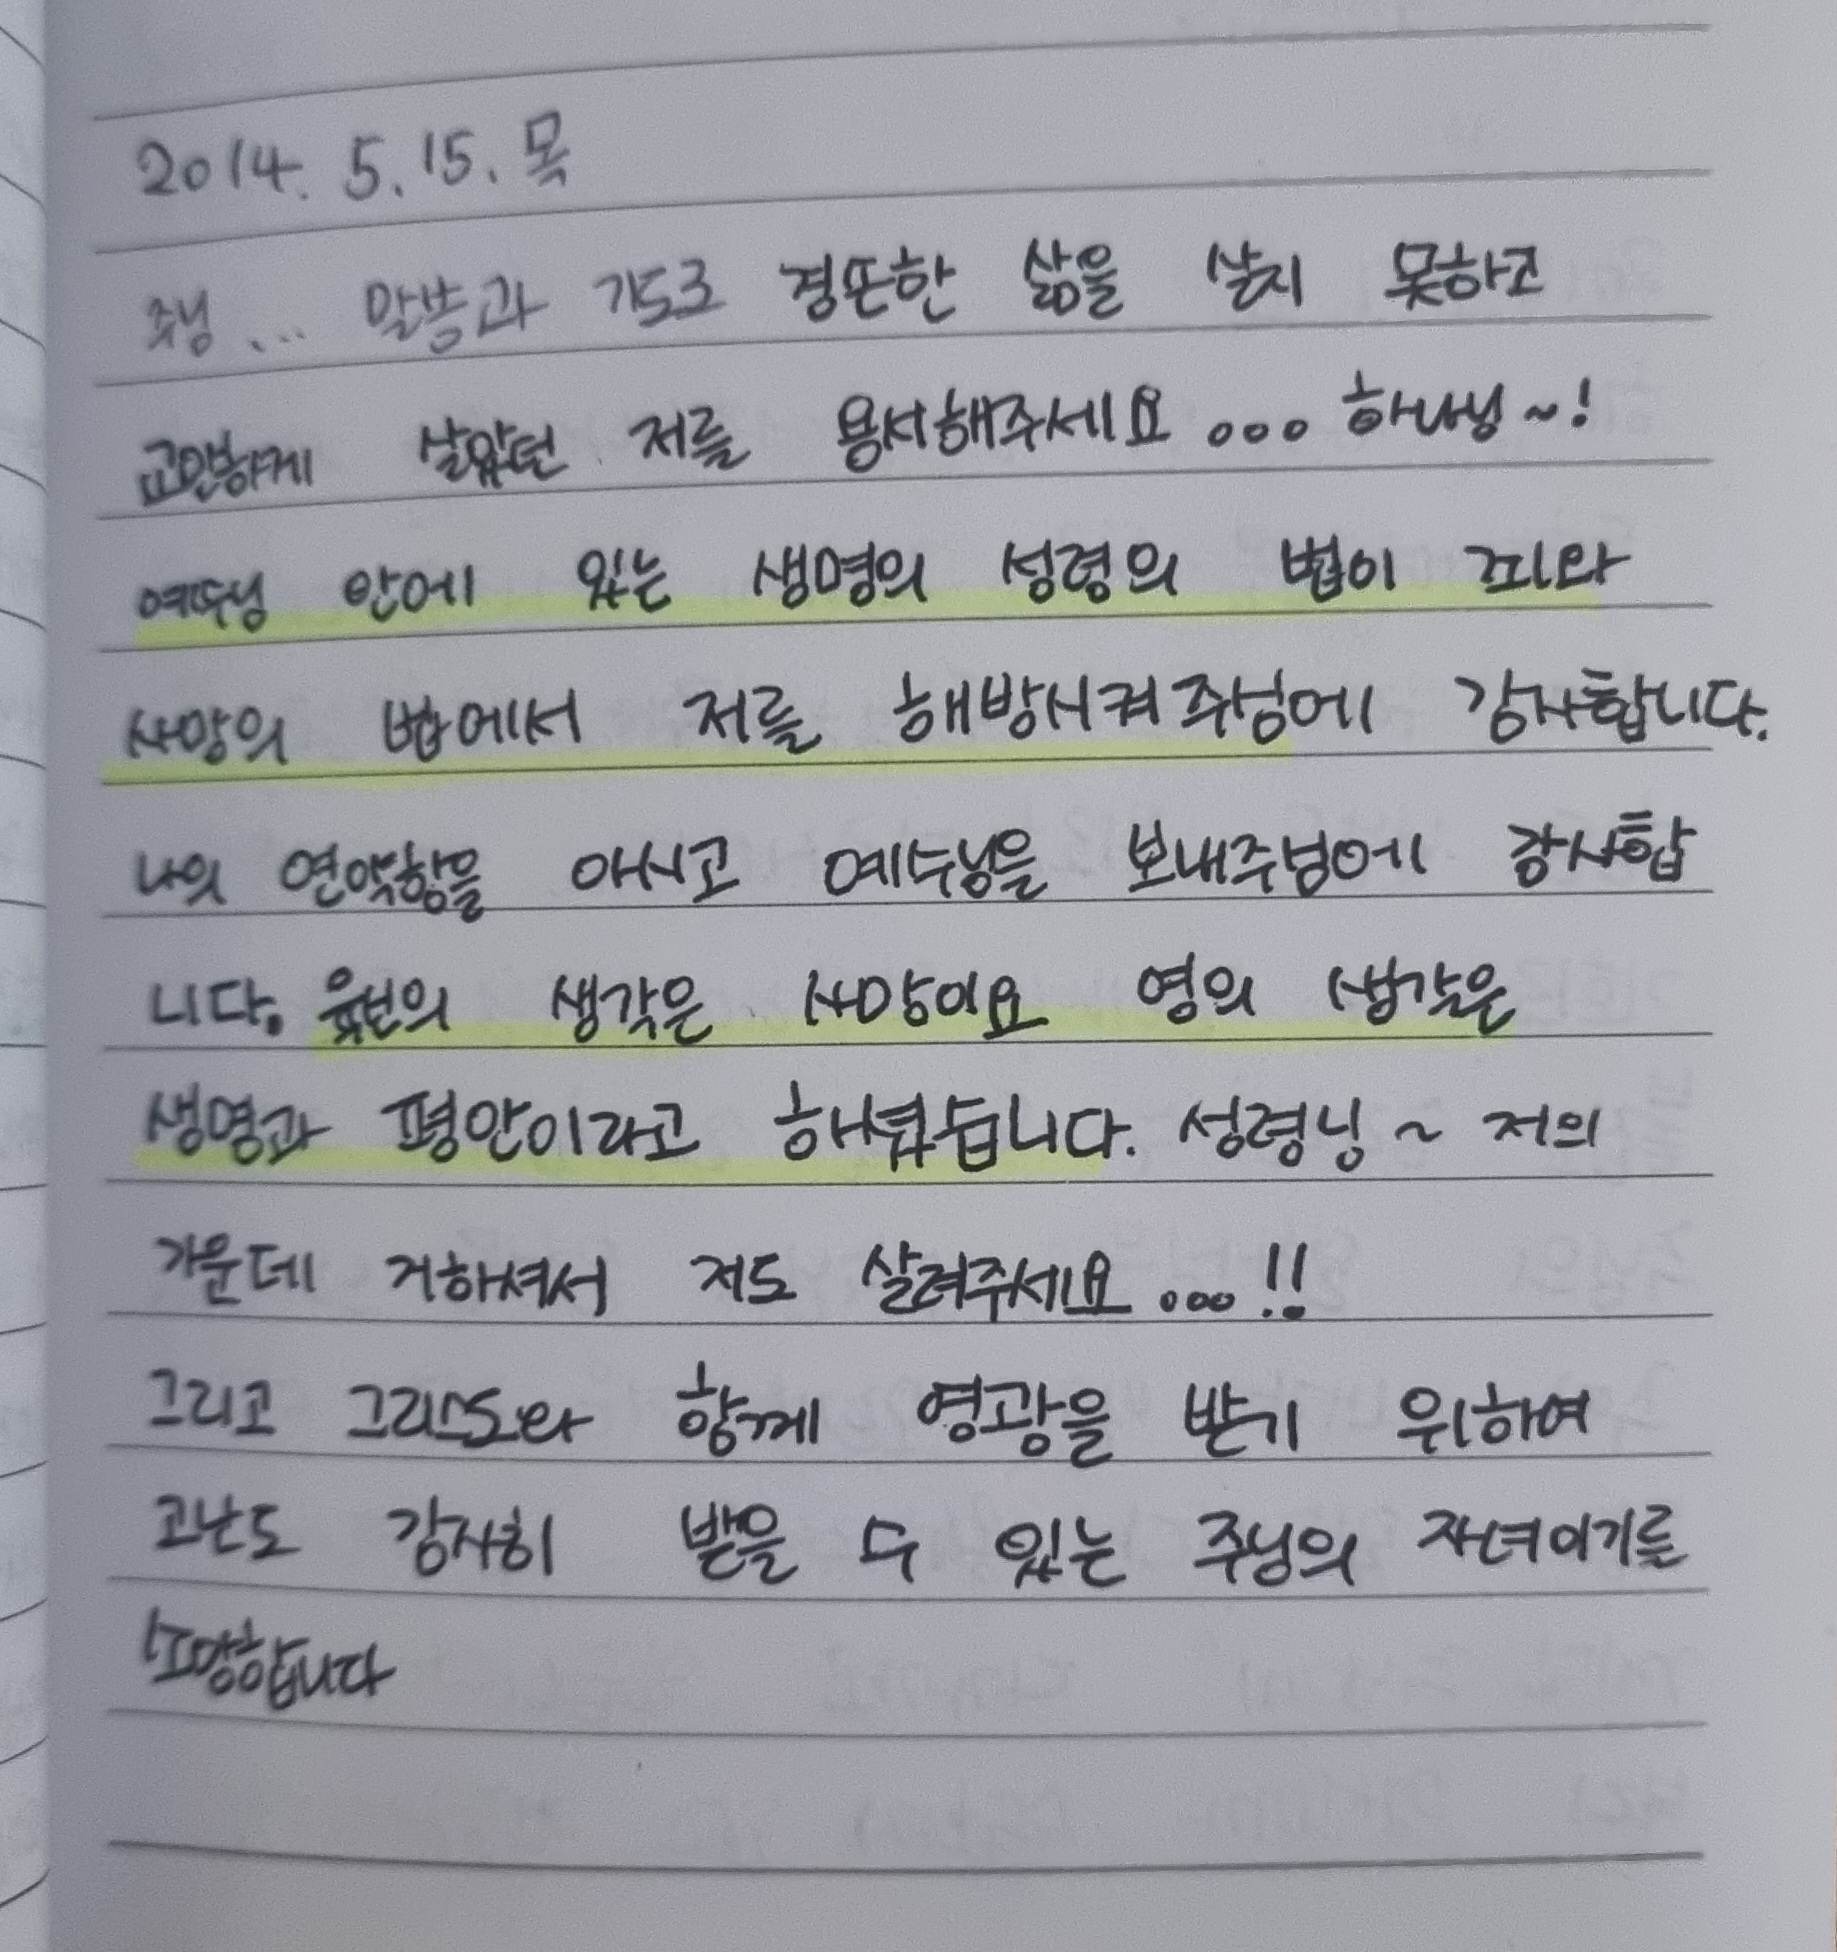 2014. 5. 15. 목
주님... 말씀과 기도로 경건한 삶을 살지 못하고
교만하게 살았던 저를 용서해주세요... 하나님~!
예수님 안에 있는 생명의 성령의 법이 죄와
사망의 법에서 저를 해방시켜주심에 감사합니다.
나의 연약함을 아시고 예수님을 보내주심에 감사합
니다. 육신의 생각은 사망이요 영의 생각은
생명과 평안이라고 하셨습니다. 성령님~ 저의
가운데 거하셔서 저도 살려주세요...!!
그리고 그리스도와 함께 영광을 받기 위하여
고난도 감사히 받을 수 있는 주님의 자녀이기를
소망합니다